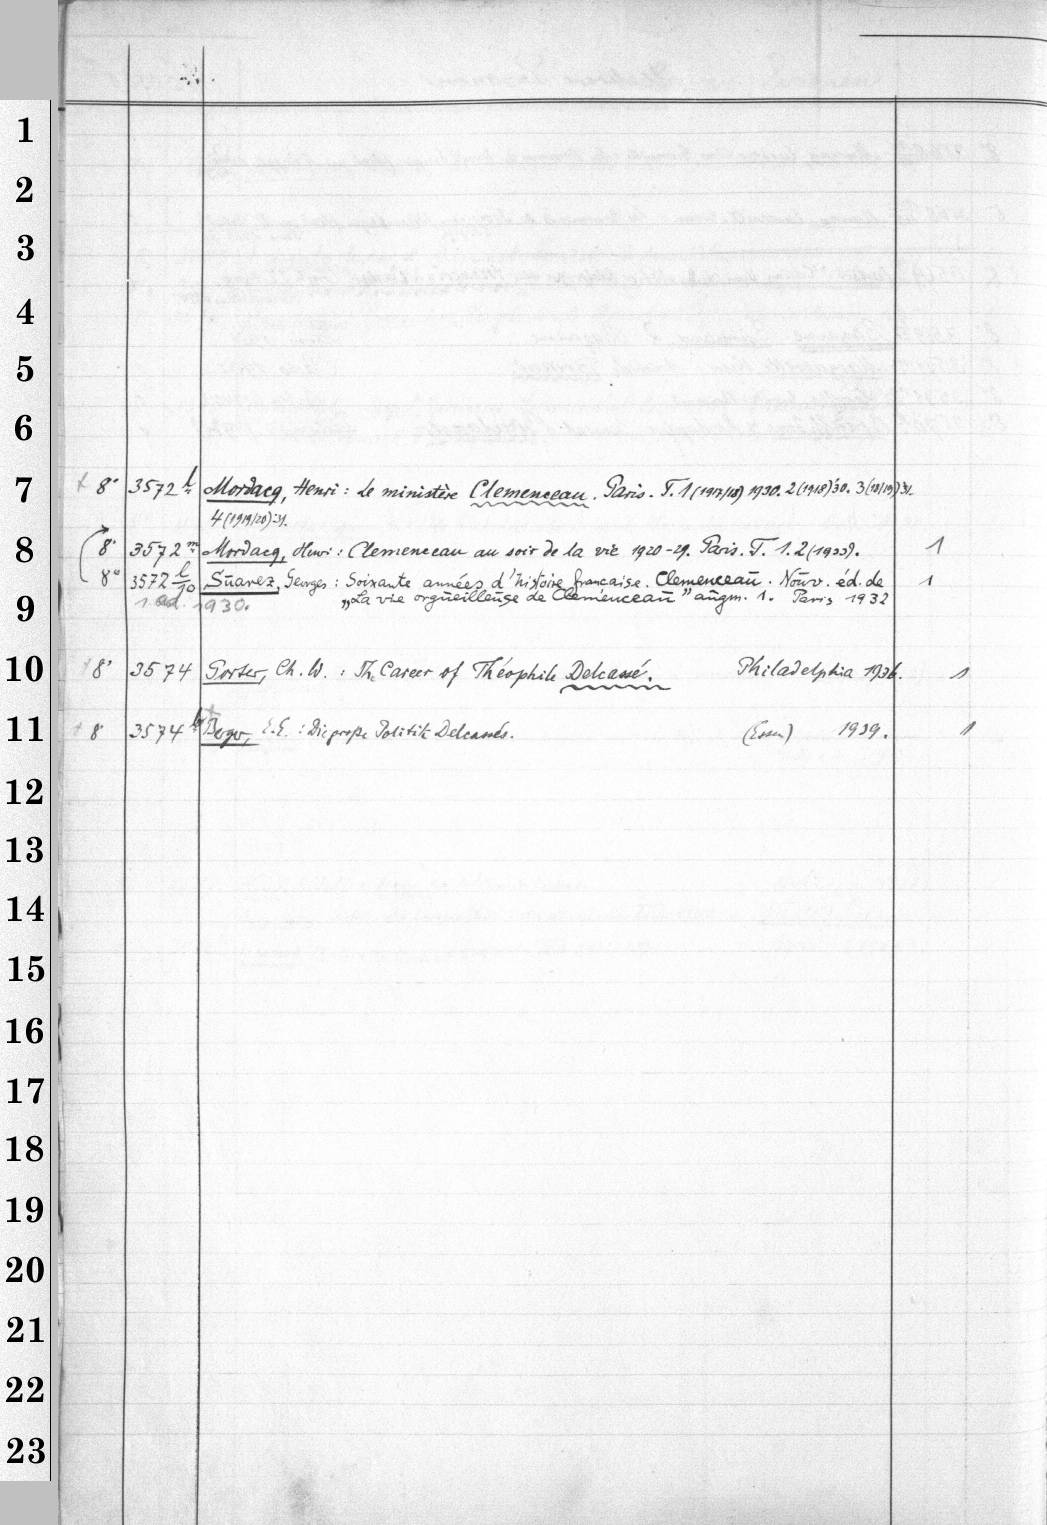 1
2
3
4
5
6
7 + 8° 3572 l Mordacq, Henri: Le ministère Clemenceau. Paris. T. 1 (1917/18) 1930. 2 (1918) 30. 3 (18/19) 31.
4 (1919/20) 31.
8 8° 3572 m Mordacq, Henri: Clemenceau au soir de la vie 1920-29. Paris. T. 1. 2 (1933). 1
8° 3572 l/10 Suarez, Georges: Soixante années d'histoire française. Clemenceau. Nouv. éd. de 1
9 1 ad. 1930. „La vie orgueilleuse de Clemenceau" augm. 1. Paris 1932
10 + 8° 3574 Porter, Ch. W.: The Career of Théophile Delcassé. Philadelphia 1936. 1
11 + 8° 3574 Berger, E.E.: Die große Politik Delcassés. (Essen) 1939. 1
12
13
14
15
16
17
18
19
20
21
22
23